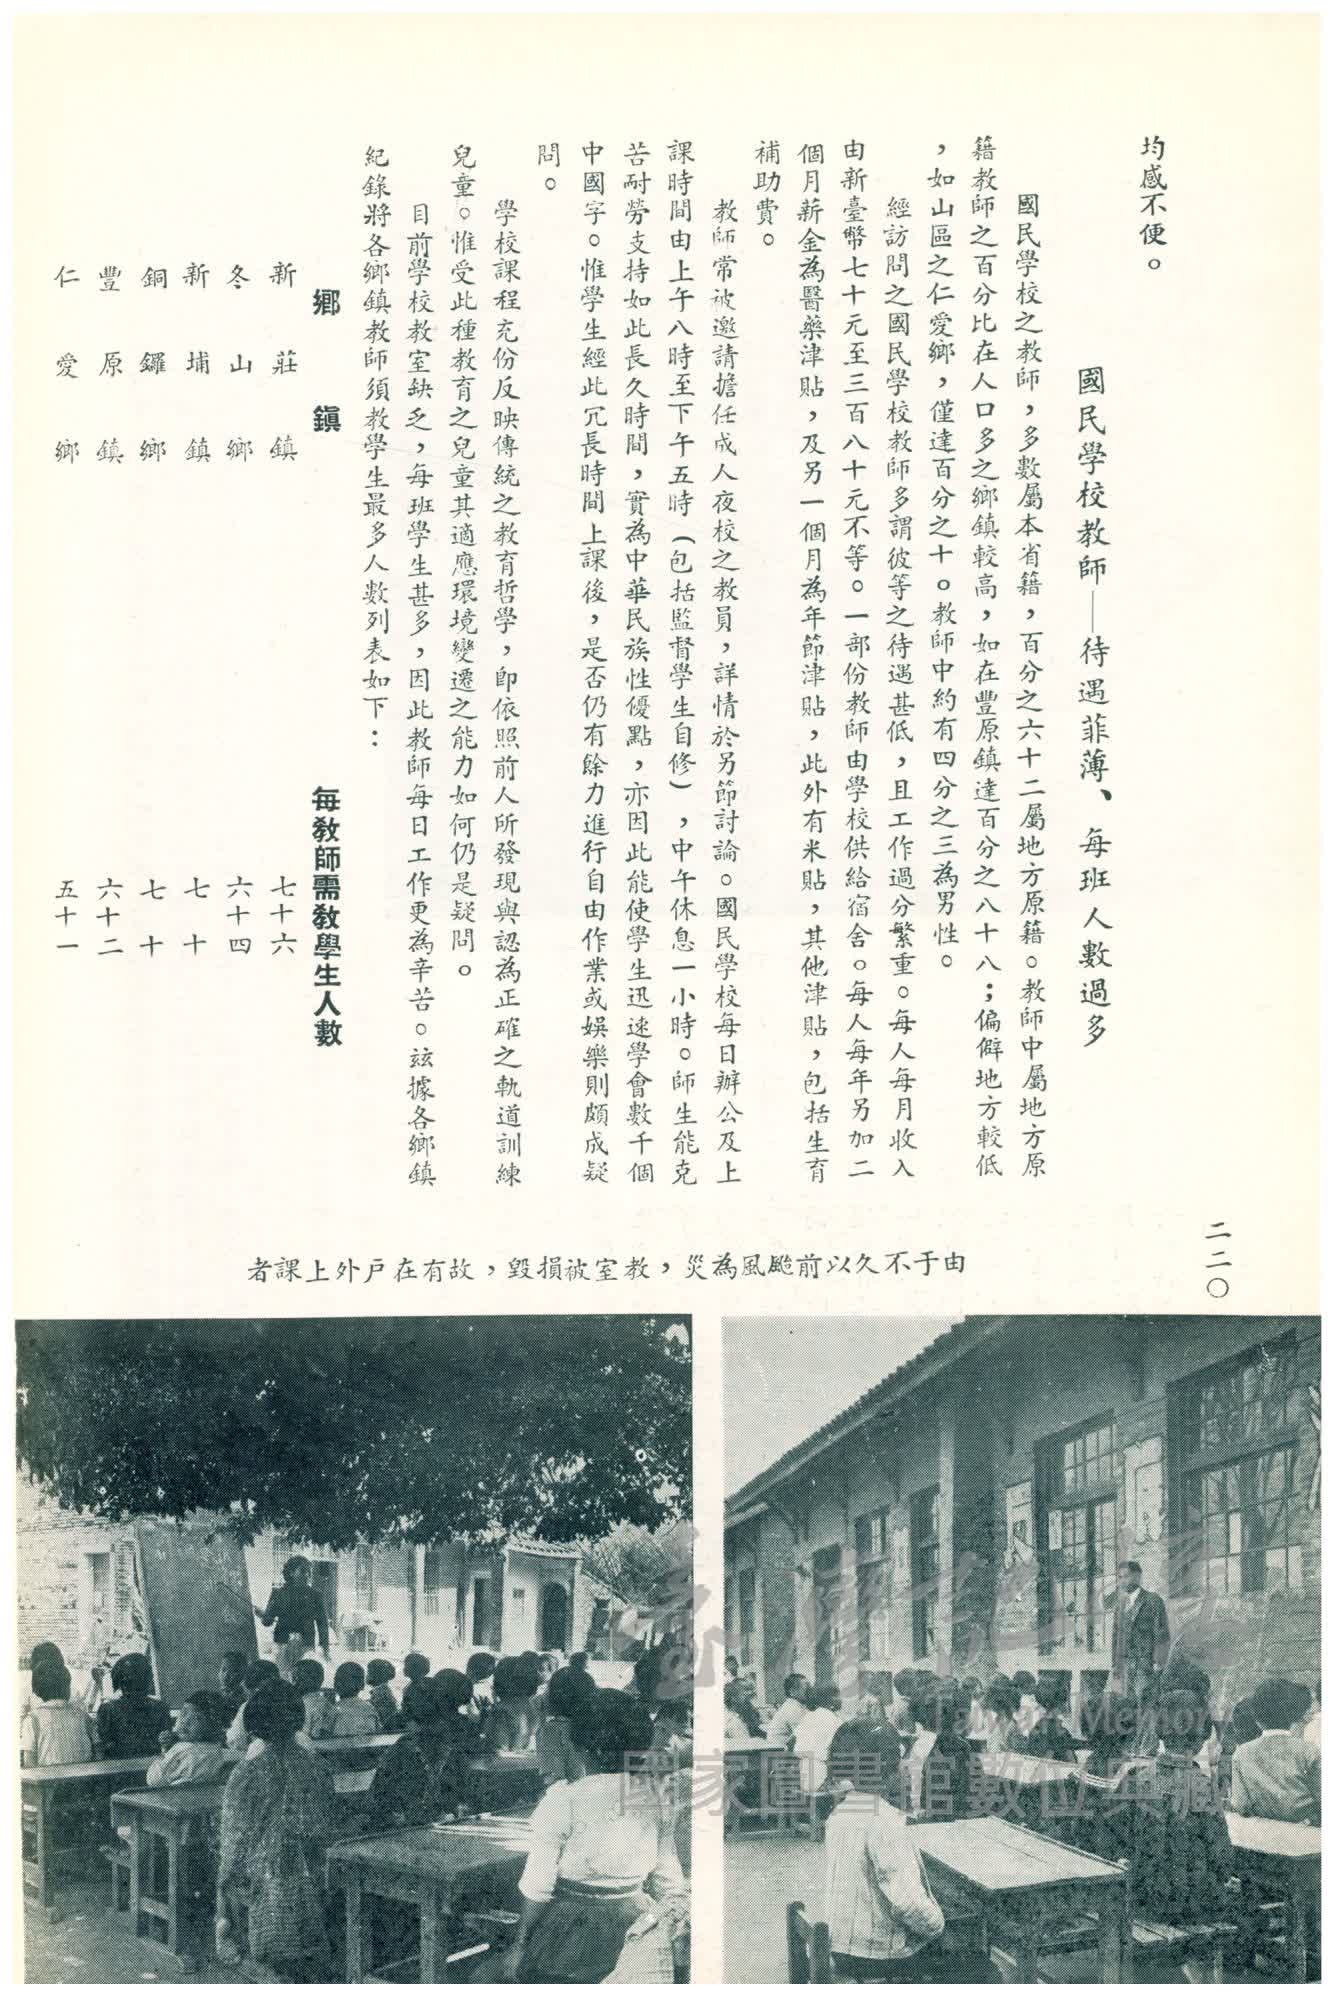 均感不便。
國民學校教師——待遇菲薄、每班人數過多
國民學校之教師，多數屬本省籍，百分之六十二屬地方原籍。教師中屬地方原
籍教師之百分比在人口多之鄉鎮較高，如在豐原鎮達百分之八十八；偏僻地方較低
，如山區之仁愛鄉，僅達百分之十。教師中約有四分之三為男性。
經訪問之國民學校教師多謂彼等之待遇甚低，且工作過分繁重。每人每月收入
由新臺幣七十元至三百八十元不等。一部份教師由學校供給宿舍。每人每年另加二
個月薪金為醫藥津貼，及另一個月為年節津貼，此外有米貼，其他津貼，包括生育
補助費。
教師常被邀請擔任成人夜校之教員，詳情於另節討論。國民學校每日辦公及上
課時間由上午八時至下午五時（包括監督學生自修），中午休息一小時。師生能克
苦耐勞支持如此長久時間，實為中華民族性優點，亦因此能使學生迅速學會數千個
中國字。惟學生經此冗長時間上課後，是否仍有餘力進行自由作業或娛樂則頗成疑
問。
學校課程充份反映傳統之教育哲學，即依照前人所發現與認為正確之軌道訓練
兒童。惟受此種教育之兒童其適應環境變遷之能力如何仍是疑問。
目前學校教室缺乏，每班學生甚多，因此教師每日工作更為辛苦。茲據各鄉鎮
紀錄將各鄉鎮教師須教學生最多人數列表如下：
鄉鎮 每教師需教學生人數
新莊鎮 七十六
冬山鄉 六十四
新埔鎮 七十
銅鑼鄉 七十
豐原鎮 六十二
仁愛鄉 五十一
二二〇
者課上外戶在有故，毀損被室教，災為風颱前以久不于由
臺灣記憶
Taiwan Memory
國家圖書館數位典藏